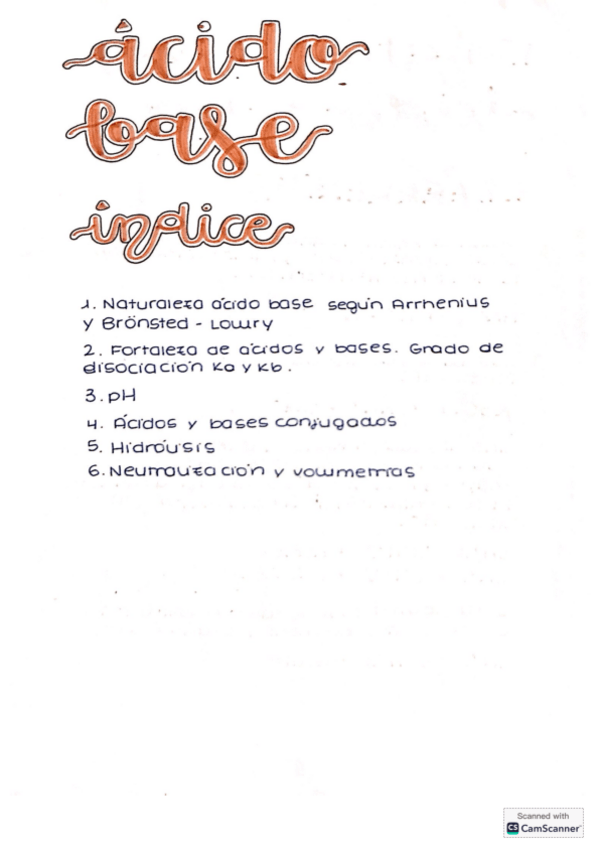 ácido
base
índice
1. Naturaleza ácido base según Arrhenius
y Brönsted - Lowry
2. Fortaleza de ácidos y bases. Grado de
disociación Ka y Kb.
3. pH
4. Ácidos y bases conjugados
5. Hidrólisis
6. Neutralización y volumetrías
Scanned with
CS CamScanner